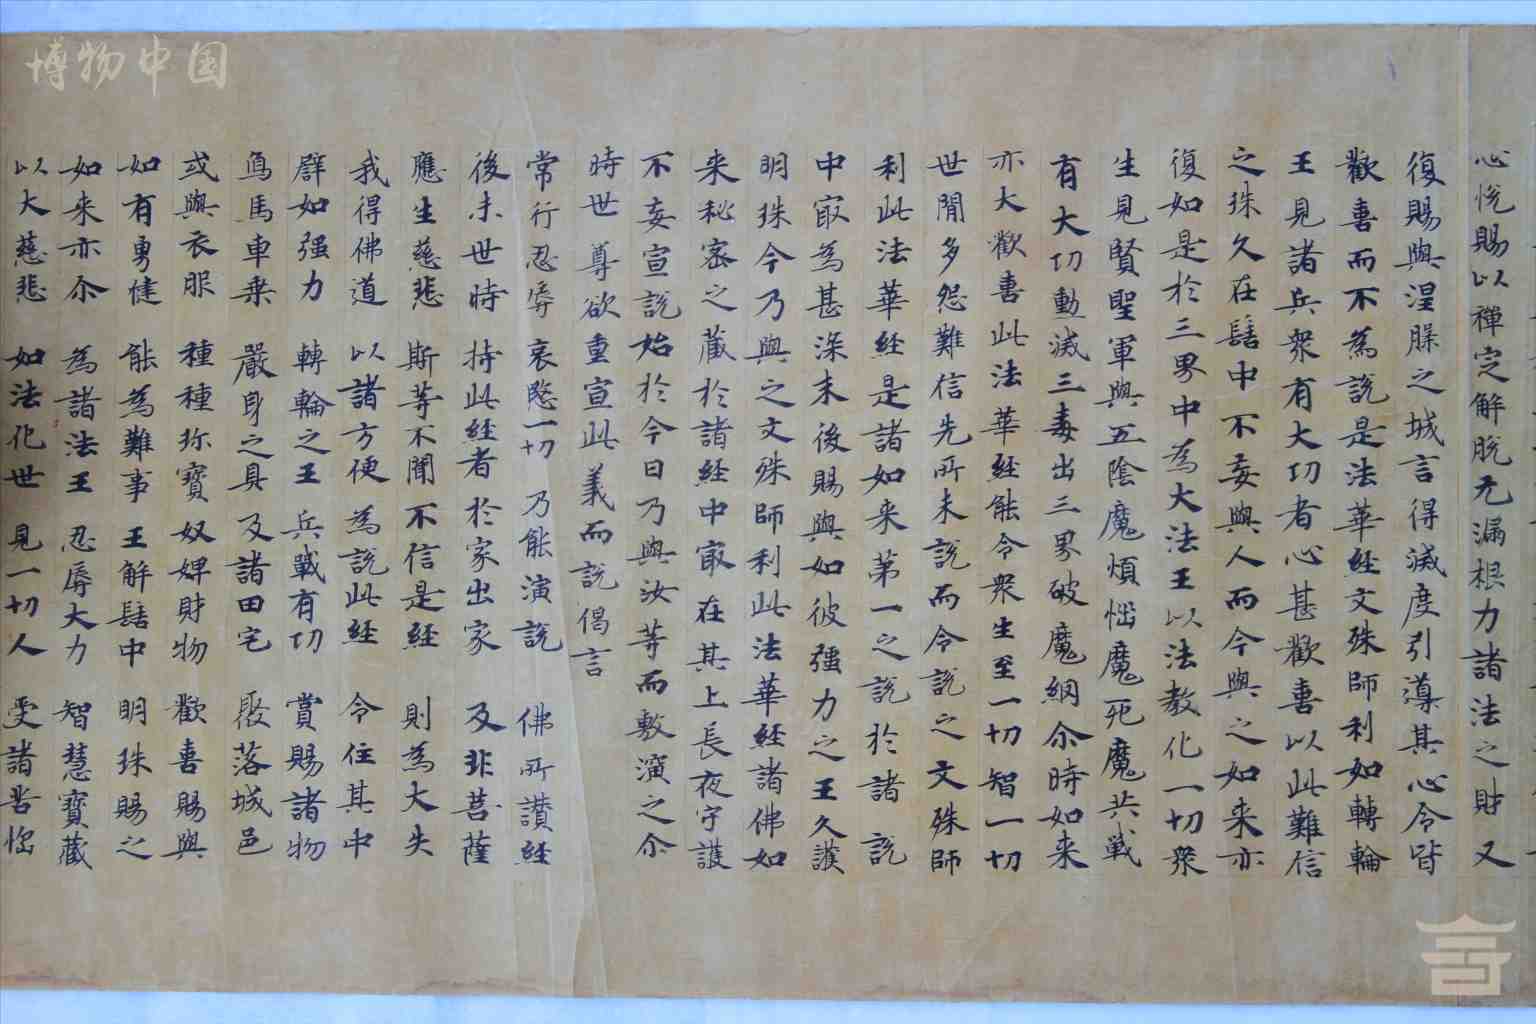 博物中国
心悅賜以禪定解脫无漏根力諸法之財又
復賜與涅槃之城言得滅度引導其心令皆
歡喜而不為說是法華經文殊師利如轉輪
王見諸兵衆有大功者心甚歡喜以此難信
之珠久在髻中不妄與人而今與之如来亦
復如是於三界中為大法王以法教化一切衆
生見賢聖軍與五陰魔煩惱魔死魔共戰
有大功勳滅三毒出三界破魔網尒時如来
亦大歡喜此法華經能令衆生至一切智一切
世間多怨難信先所未說而今說之文殊師
利此法華經是諸如来第一之說於諸說
中㝡為甚深末後賜與如彼強力之王久護
明珠今乃與之文殊師利此法華經諸佛如
来秘密之藏於諸經中㝡在其上長夜守護
不妄宣說始於今日乃與汝等而敷演之尒
時世尊欲重宣此義而說偈言
常行忍辱 哀愍一切 乃能演說 佛所讚經
後末世時 持此經者 於家出家 及非菩薩
應生慈悲 斯等不聞 不信是經 則為大失
我得佛道 以諸方便 為說此經 令住其中
辟如强力 轉輪之王 兵戰有功 賞賜諸物
鳥馬車乗 嚴身之具 及諸田宅 聚落城邑
或與衣服 種種珎寶 奴婢財物 歡喜賜與
如有勇健 能為難事 王解髻中 明珠賜之
如来亦尒 為諸法王 忍辱大力 智慧寶藏
以大慈悲 如法化世 見一切人 受諸苦惱